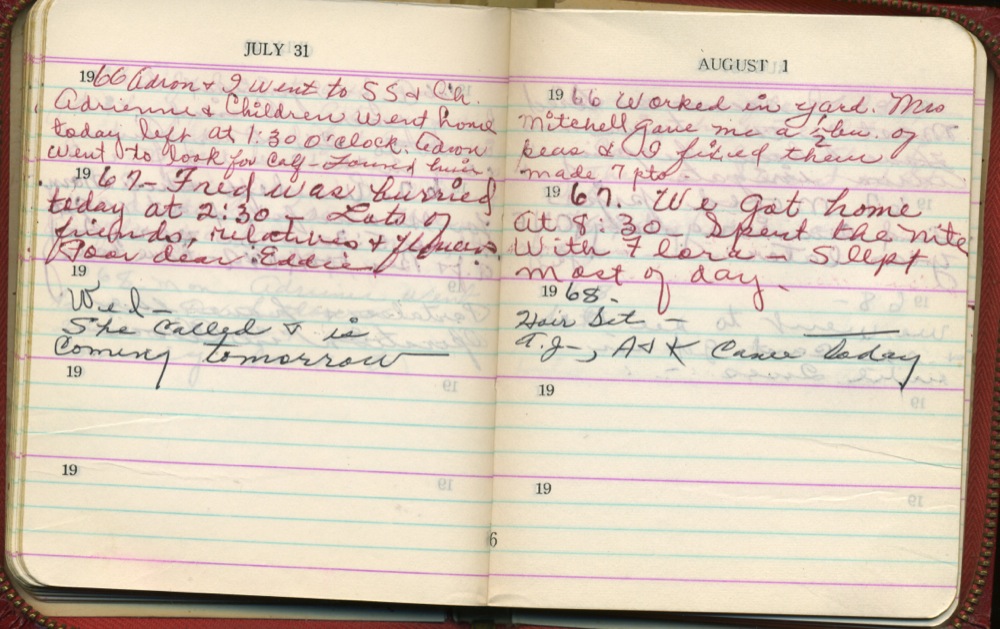 JULY 31
1966 Aaron & I went to SS & Ch.
Adrienne & Children went home
today left at 1:30 O'clock. Aaron
went to look for calf - found him.
1967 - Fred was burried
today at 2:30 - Lots of
friends, relatives & flowers.
Poor dear Eddie
19
Wed -
She called & is
coming tomorrow
19
19
AUGUST 1
1966 Worked in yard. Mrs
Mitchell gave me a 1/2 bu. of
peas & I fixed them
made 7 pts.
1967. We got home
at 8:30 - Spent the nite
with Flora - Sllept
most of day.
1968 -
Hair Set -
T.J-, A & K came today
19
19
6